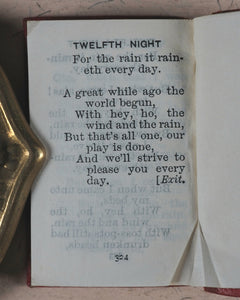 TWELFTH NIGHT
For the rain it rain-
eth every day.
A great while ago the
world begun,
With hey, ho, the
wind and the rain,
But that's all one, our
play is done,
And we'll strive to
please you every
day. [Exit.
324